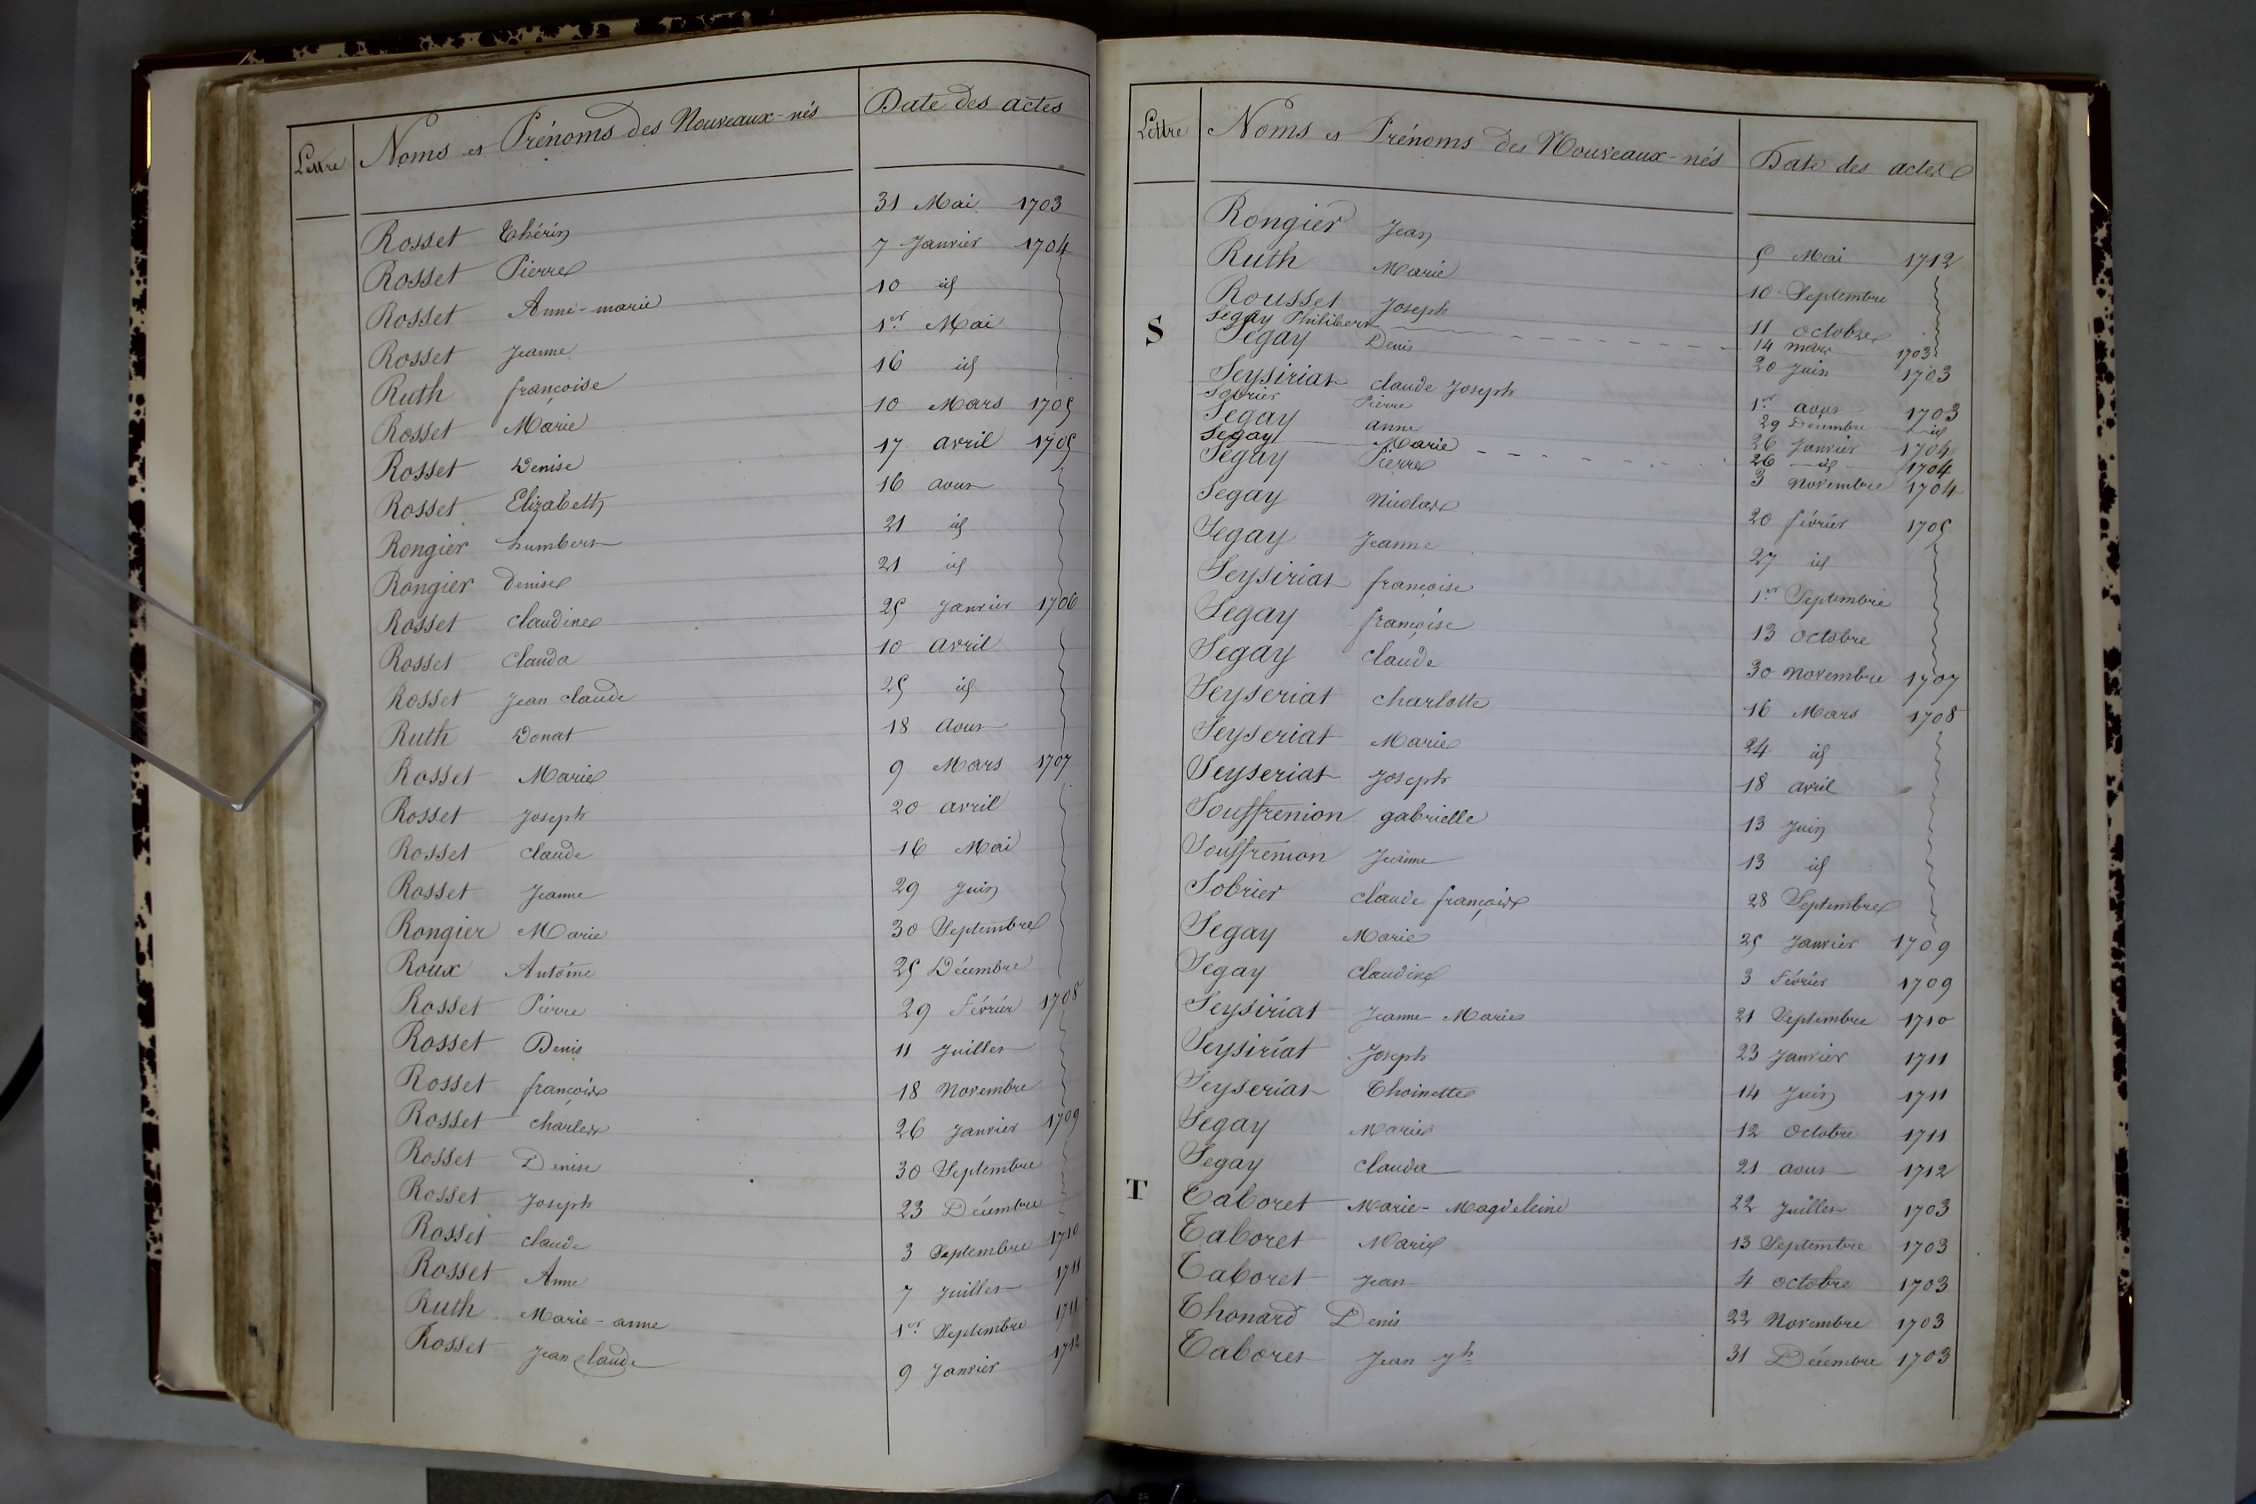 Lettre Noms et Prénoms des Nouveaux-nés Date des actes
Rosset Thérin 31 Mai 1703
Rosset Pierre 7 Janvier 1704
Rosset Anne-marie 10 id
Rosset Jeanne 1er Mai
Ruth françoise 16 id
Rosset Marie 10 Mars 1705
Rosset Denise 17 avril 1705
Rosset Elizabeth 16 aout
Rongier humbert 21 id
Rongier denise 21 id
Rosset claudine 25 Janvier 1706
Rosset clauda 10 avril
Rosset Jean claude 25 id
Ruth Donat 18 Aout
Rosset Marie 9 Mars 1707
Rosset Joseph 20 avril
Rosset claude 16 Mai
Rosset Jeanne 29 Juin
Rongier Marie 30 Septembre
Roux Antoine 25 Décembre
Rosset Pierre 29 Février 1708
Rosset Denis 11 Juillet
Rosset françois 18 Novembre
Rosset charles 26 Janvier 1709
Rosset Denise 30 Septembre
Rosset Joseph 23 Décembre
Rosset claude 3 Septembre 1710
Rosset Anne 7 Juillet 1711
Ruth Marie-anne 1er Septembre 1711
Rosset Jean claude 9 Janvier 1712
Lettre Noms et Prénoms des Nouveaux-nés Date des actes
Rongier Jean 5 Mai 1712
Ruth Marie 10 Septembre
Rousset Joseph 11 octobre
Segay Philibert 14 mars 1703
S Segay Denis 20 Juin 1703
Seysiriat claude Joseph 1er aout 1703
Sobrier Pierre 29 Décembre id
Segay anne 26 Janvier 1704
Segay Marie 26 id 1704
Segay Pierre 3 Novembre 1704
Segay Nicolas 20 février 1705
Segay Jeanne 27 id
Seysiriat françoise 1er Septembre
Segay françoise 13 octobre
Segay claude 30 Novembre 1707
Seyseriat charlotte 16 Mars 1708
Seyseriat Marie 24 id
Seyseriat Joseph 18 avril
Souffrenion gabrielle 13 Juin
Souffrenion Jeanne 13 id
Sobrier claude françois 28 Septembre
Segay Marie 25 Janvier 1709
Segay claudine 3 Février 1709
Seysiriat Jeanne-Marie 21 Septembre 1710
Seysiriat Joseph 23 Janvier 1711
Seyseriat Thoinette 14 Juin 1711
Segay Marie 12 Octobre 1711
Segay clauda 21 aout 1712
T Taboret Marie-Magdeleine 22 Juillet 1703
Taboret Marie 13 Septembre 1703
Taboret Jean 4 octobre 1703
Thonard Denis 22 Novembre 1703
Taboret Jean Jh 31 Décembre 1703